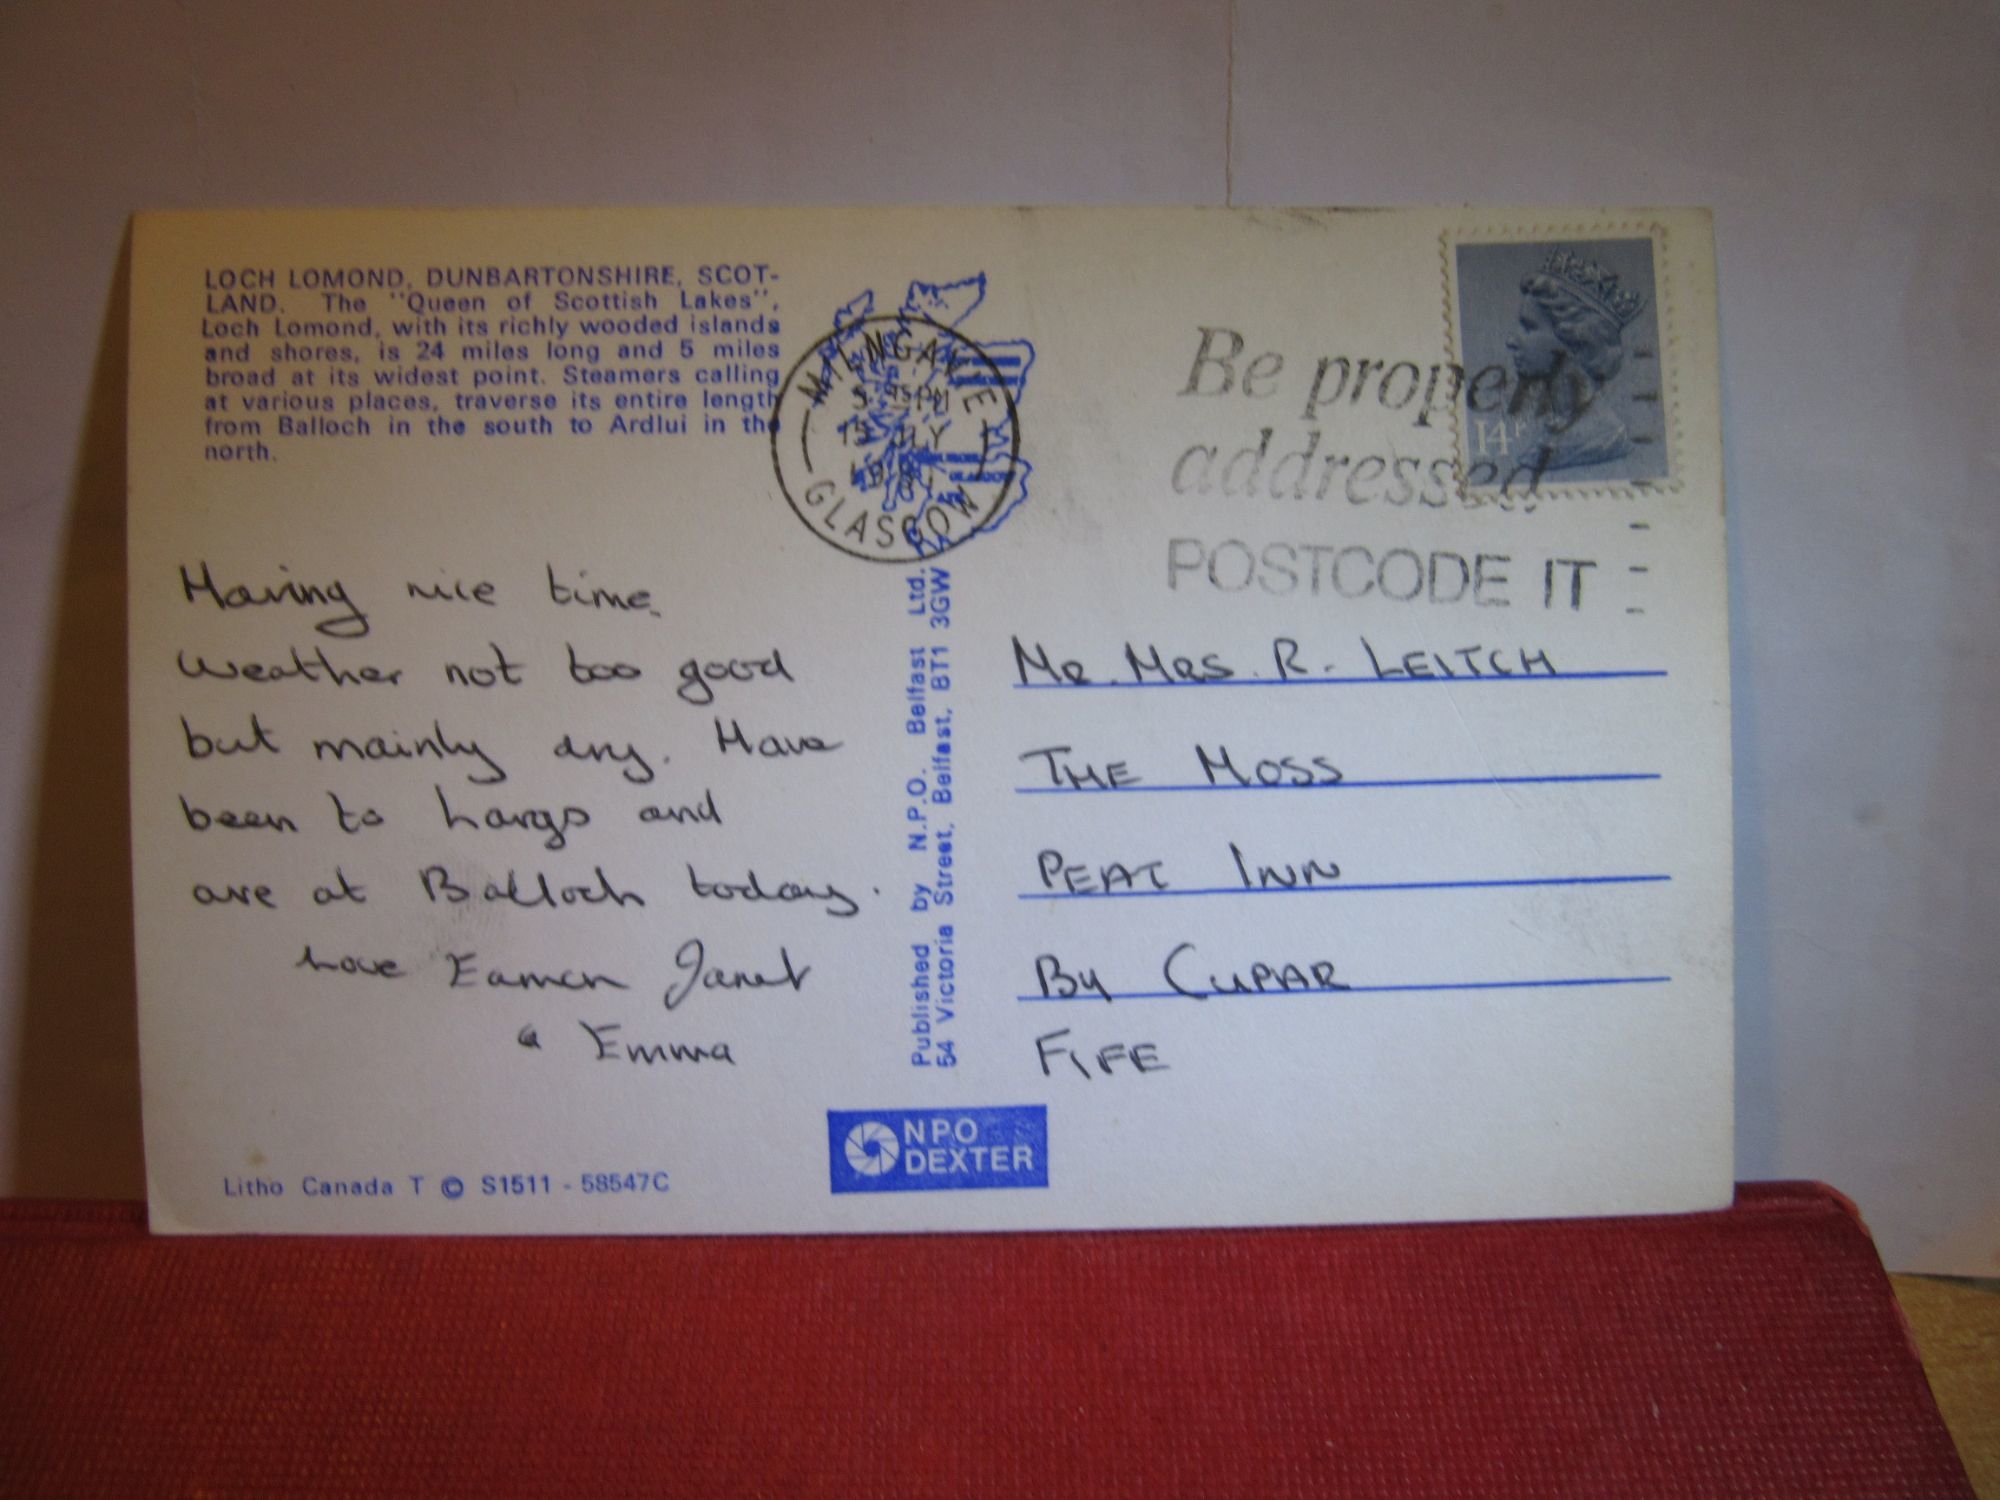 LOCH LOMOND, DUNBARTONSHIRE, SCOT-
LAND. The "Queen of Scottish Lakes",
Loch Lomond, with its richly wooded islands
and shores, is 24 miles long and 5 miles
broad at its widest point. Steamers calling
at various places, traverse its entire length
from Balloch in the south to Ardlui in the
north.
MILNGAVIE
GLASGOW
Be properly
addressed
POSTCODE IT
14P
Having nice time.
Weather not too good
but mainly dry. Have
been to Largs and
are at Balloch today.
Love Eamon Janet
& Emma
Published by N.P.O. Belfast Ltd.
54 Victoria Street, Belfast, BT1 3GW
MR. MRS. R. LEITCH
THE MOSS
PEAT INN
By CUPAR
FIFE
NPO
DEXTER
Litho Canada T © S1511 - 58547C